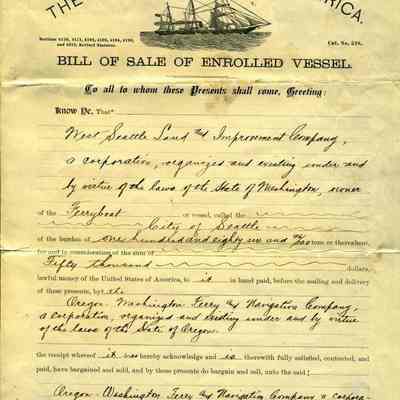 THE
RICA.
Sections 4170, 4171,
and 4312, Revised Statutes.
Cat. No. 526.
BILL OF SALE OF ENROLLED VESSEL.
To all to whom these Presents shall come, Greeting:
Know Ye, That
West Seattle Land and Improvement Company,
a corporation, organized and existing under and
by virtue of the laws of the State of Washington, owner
of the Ferryboat or vessel, called the
City of Seattle
of the burden of one hundred and eighty six and tons or thereabout,
for and in consideration of the sum of
Fifty thousand dollars,
lawful money of the United States of America, to it in hand paid, before the sealing and delivery
of these presents, by the
Oregon-Washington Ferry and Navigation Company,
a corporation, organized and existing under and by virtue
of the laws of the State of Oregon.
the receipt whereof it does hereby acknowledge and is therewith fully satisfied, contented, and
paid, have bargained and sold, and by these presents do bargain and sell, unto the said
Oregon-Washington Ferry and Navigation Company a corpora-